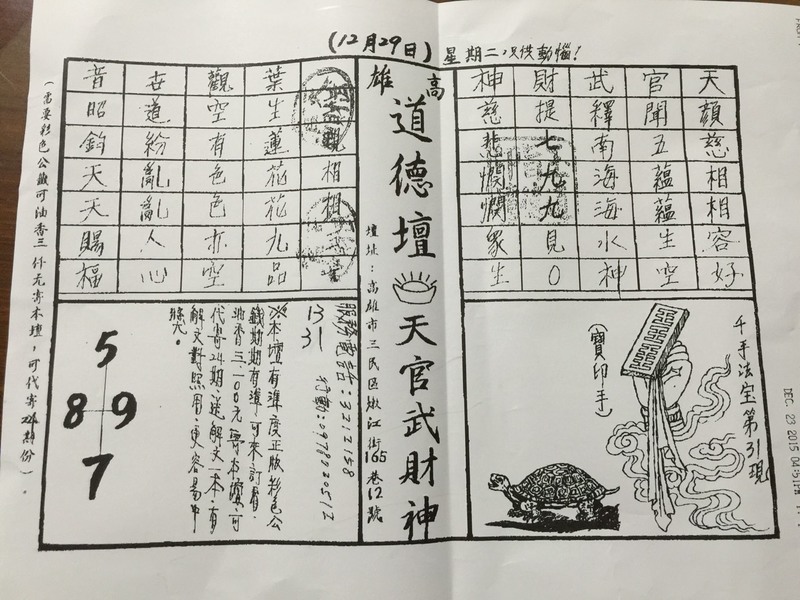 (12月29日) 星期二只供動惱!
天顏慈相相容好
官聞五蘊蘊生空
武釋南海海水神
財提七九九見0
神慈悲憫憫眾生
千手法宝第31現
(寶印手)
高雄
道德壇 天官武財神
壇址:高雄市三民區嫩江街165巷12號
相相
葉生蓮花花九品
觀空有色色亦空
世道紛亂亂人心
音昭鈞天天賜福
服務電話:3212158
行動:0978220512
13
31
※本壇有準度正版彩色公
籤期期有準,可來訂看,
油香三.一00元寄本壇,可
代寄24期送解文一本,有
解文對照用更容易中
5
8 9
7
(需要彩色公籤可油香三仟元寄本壇,可代寄24期份)。
DEC 23 2015